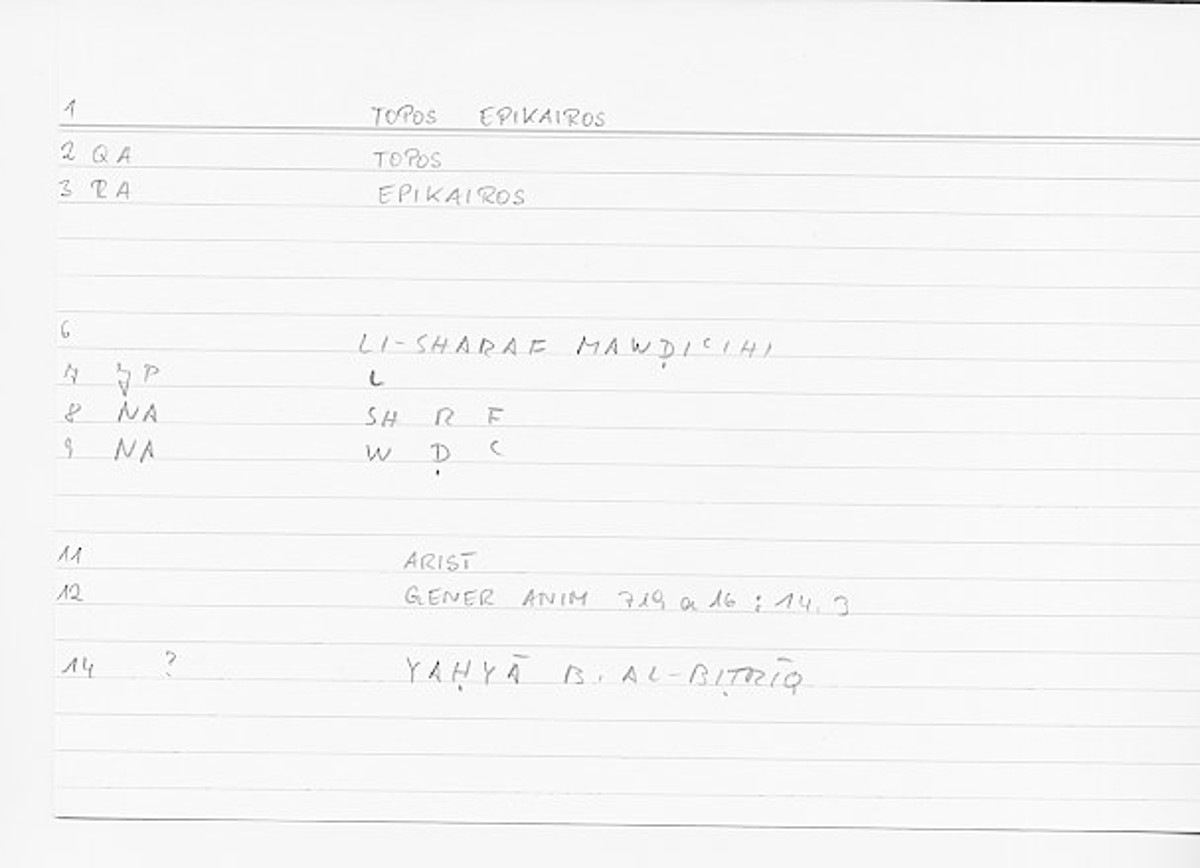 1 TOPOS EPIKAIROS
2 QA TOPOS
3 RA EPIKAIROS
6 LI-SHARAF MAWḌIʿIHI
7 P L
8 NA SH R F
9 NA W Ḍ ʿ
11 ARIST
12 GENER ANIM 719 a 16 : 14.3
14 ? YAḤYĀ B. AL-BIṬRĪQ